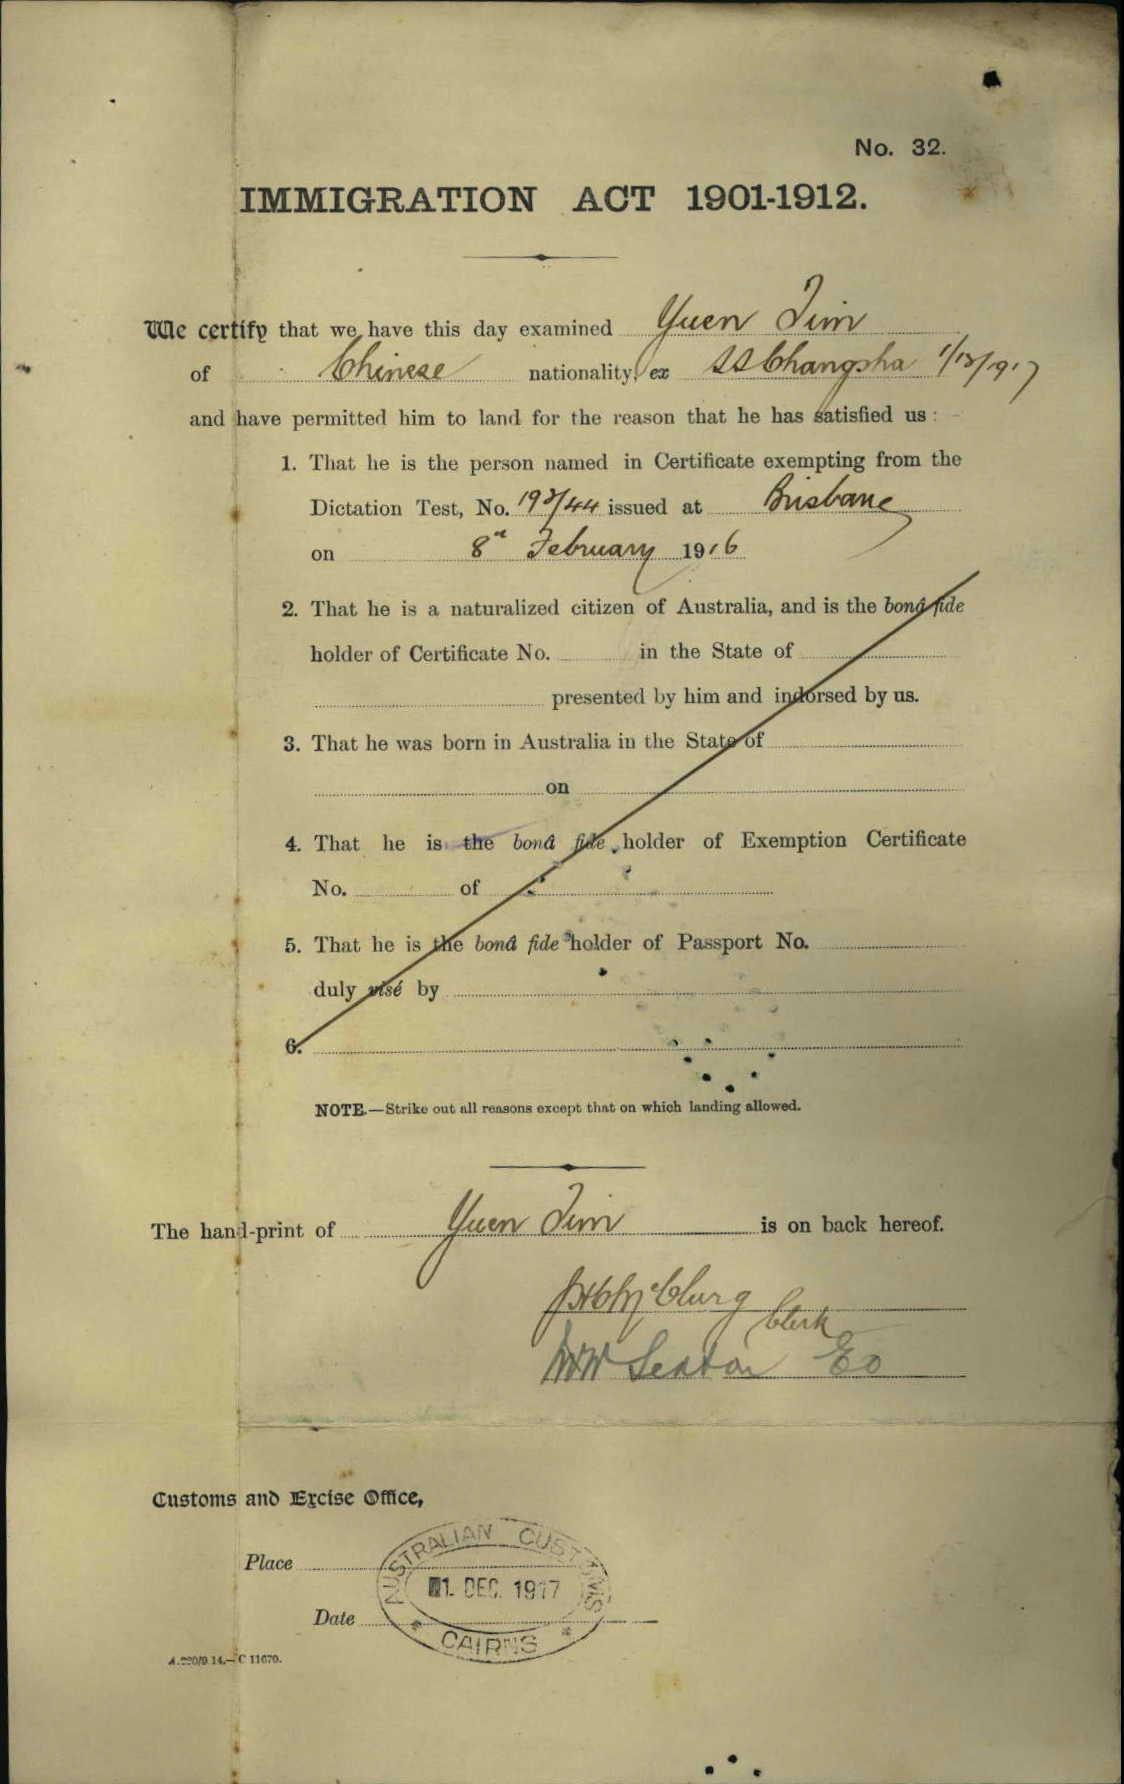 No. 32.
IMMIGRATION ACT 1901-1912.
We certify that we have this day examined Yuen Tim
of Chinese nationality, ex SS Changsha 1/12/1917
and have permitted him to land for the reason that he has satisfied us :
1. That he is the person named in Certificate exempting from the
Dictation Test, No. 193/44 issued at Brisbane
on 8th February 1916
2. That he is a naturalized citizen of Australia, and is the bonâ fide
holder of Certificate No. in the State of
presented by him and indorsed by us.
3. That he was born in Australia in the State of
on
4. That he is the bonâ fide holder of Exemption Certificate
No. of
5. That he is the bonâ fide holder of Passport No.
duly visé by
6.
NOTE.—Strike out all reasons except that on which landing allowed.
The hand-print of Yuen Tim is on back hereof.
McClurg
Clerk
Seaton EO
Customs and Excise Office,
Place
Date
AUSTRALIAN CUSTOMS
1. DEC. 1917
CAIRNS
A.220/9.14.—C 11670.